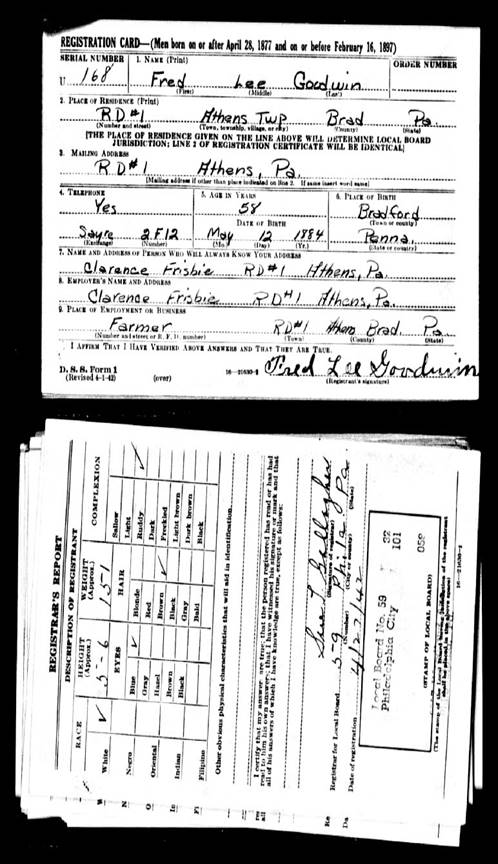 REGISTRATION CARD—(Men born on or after April 28, 1877 and on or before February 16, 1897)
SERIAL NUMBER
1. NAME (Print)
ORDER NUMBER
U 168
Fred Lee Goodwin
(First) (Middle) (Last)
2. PLACE OF RESIDENCE (Print)
RD#1 Athens Twp Brad Pa.
(Number and street) (Town, township, village, or city) (County) (State)
[THE PLACE OF RESIDENCE GIVEN ON THE LINE ABOVE WILL DETERMINE LOCAL BOARD
JURISDICTION; LINE 2 OF REGISTRATION CERTIFICATE WILL BE IDENTICAL]
3. MAILING ADDRESS
RD#1 Athens, Pa.
[Mailing address if other than place indicated on line 2. If same insert word same]
4. TELEPHONE
5. AGE IN YEARS
6. PLACE OF BIRTH
Yes
58
Bradford
DATE OF BIRTH
(Town or county)
Sayre 2.F.12
May 12 1884
Penna.
(Exchange) (Number)
(Mo.) (Day) (Yr.)
(State or country)
7. NAME AND ADDRESS OF PERSON WHO WILL ALWAYS KNOW YOUR ADDRESS
Clarence Frisbie RD#1 Athens, Pa.
8. EMPLOYER'S NAME AND ADDRESS
Clarence Frisbie RD#1 Athens, Pa.
9. PLACE OF EMPLOYMENT OR BUSINESS
Farmer RD#1 Athens Brad. Pa.
(Number and street or R. F. D. number) (Town) (County) (State)
I AFFIRM THAT I HAVE VERIFIED ABOVE ANSWERS AND THAT THEY ARE TRUE.
D. S. S. Form 1
(Revised 4-1-42) (over) 16—21630-2
Fred Lee Goodwin
(Registrant's signature)
REGISTRAR'S REPORT
DESCRIPTION OF REGISTRANT
RACE
HEIGHT (Approx.)
WEIGHT (Approx.)
COMPLEXION
5-6
151
White
Negro
Oriental
Indian
Filipino
EYES
Blue
Gray
Hazel
Brown
Black
HAIR
Blonde
Red
Brown
Black
Gray
Bald
Sallow
Light
Ruddy
Dark
Freckled
Light brown
Dark brown
Black
Other obvious physical characteristics that will aid in identification
I certify that my answers are true; that the person registered has read or has had
read to him his own answers; that I have witnessed his signature or mark and that
all of his answers of which I have knowledge are true, except as follows:
Registrar for Local Board 59 Phila Pa
(Number) (City or county) (State)
Date of registration 4/27/42
Local Board No. 59 32
Philadelphia City 101
059
(STAMP OF LOCAL BOARD)
(The stamp of the local board having jurisdiction of the registrant
shall be placed in the above space)